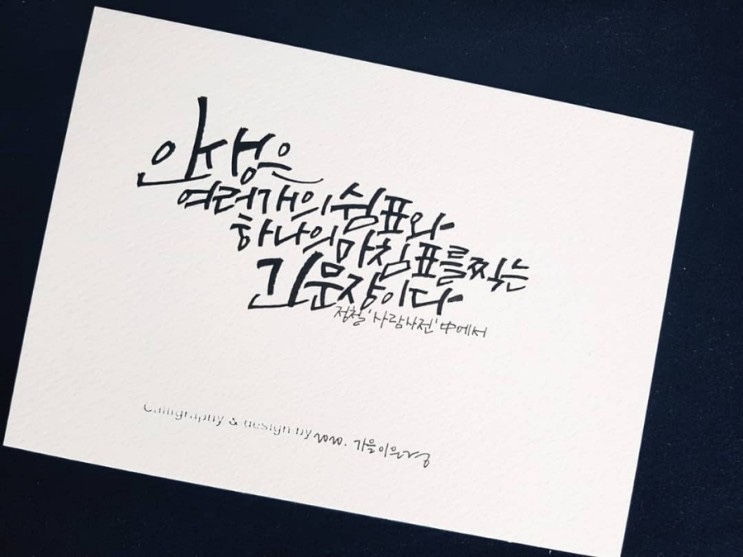 인생은
여러개의 쉼표와
하나의 마침표를 찍는
긴 문장이다
정철 '사람사전' 中에서
Calligraphy & design by 2020. 가을